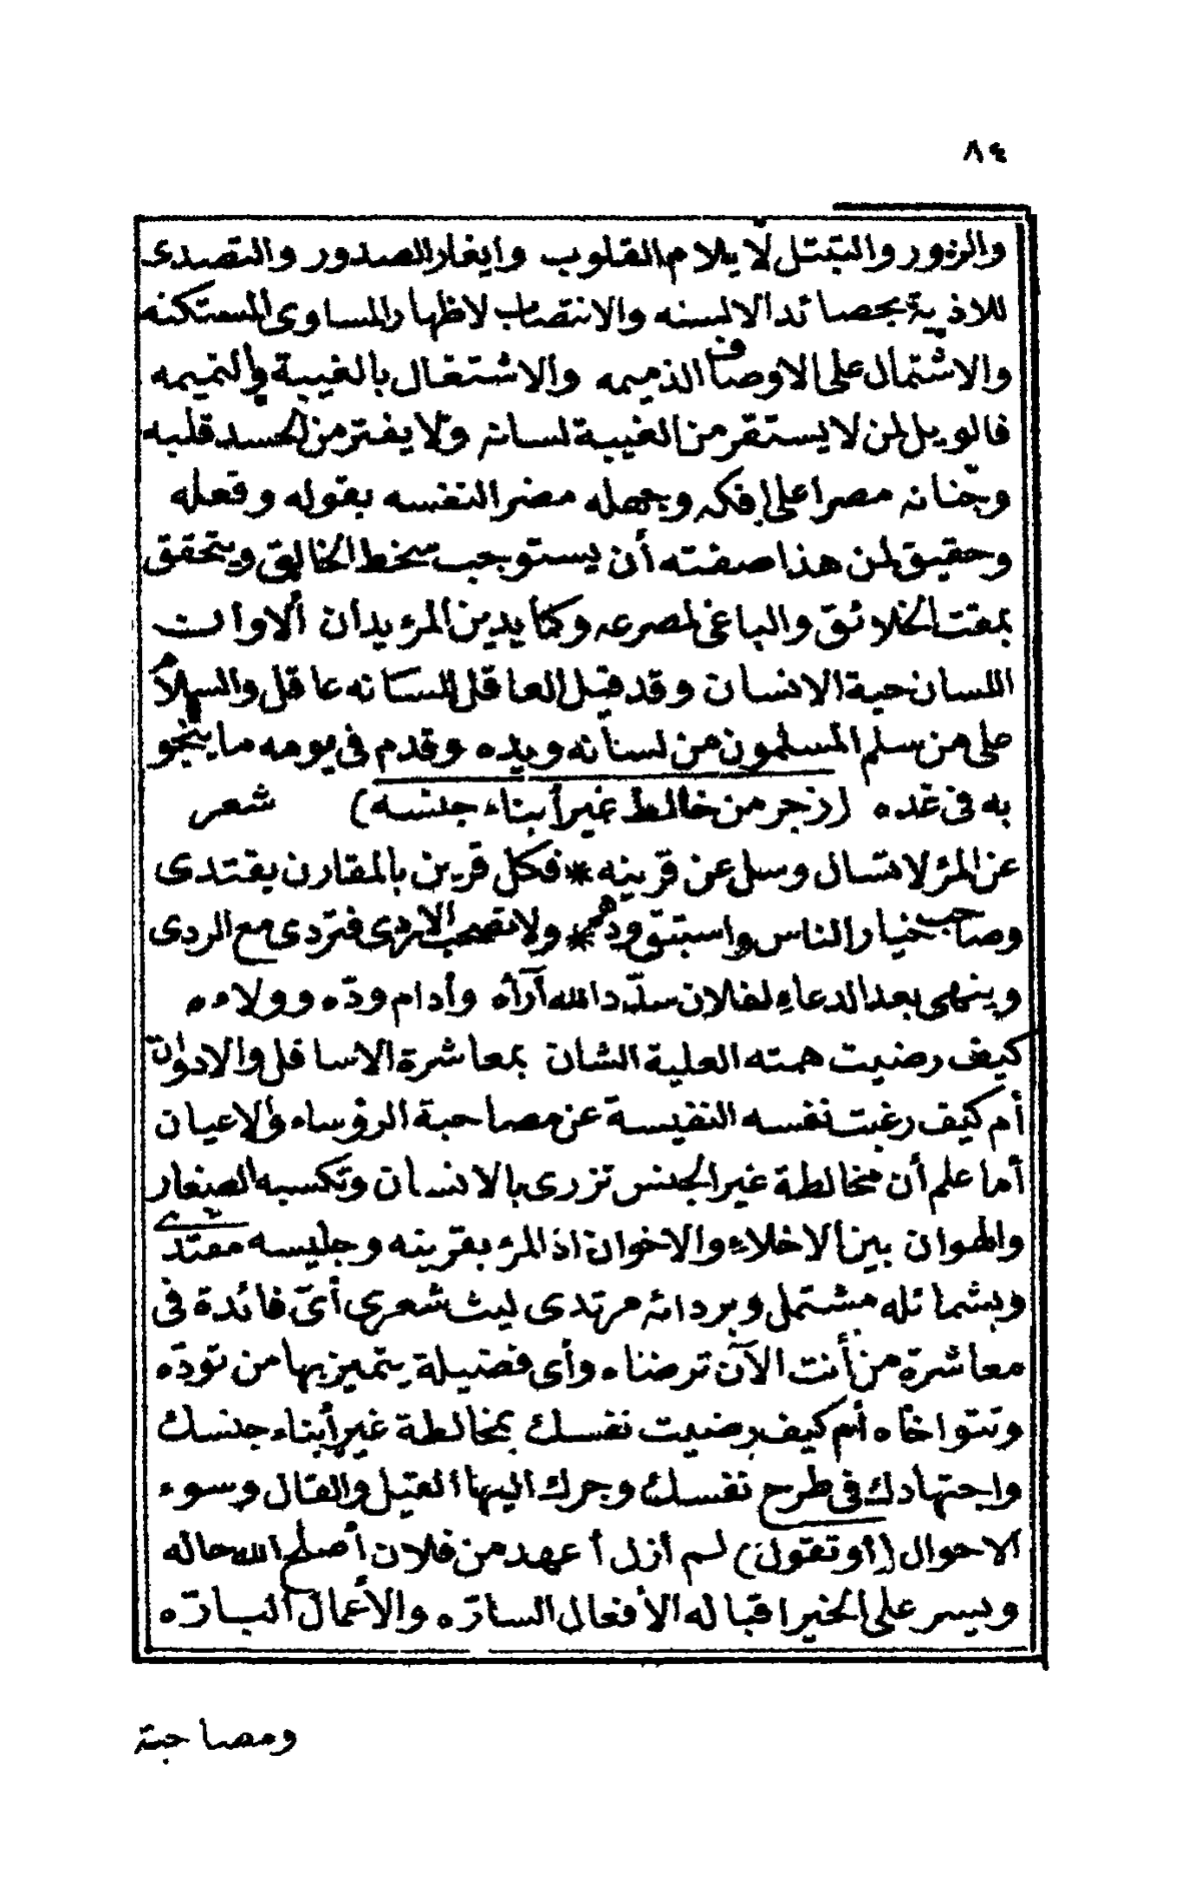 ٨٤
والزور والتبتل لا يلام القلوب وايغار الصدور والتصدى
للاذية بحصائد الالسنه والانتصاب لاظهار المساوى المستكنه
والاشتمال على الاوصاف الذميمه والاشتغال بالغيبة والنميمه
فالويل لمن لا يستقر من الغيبة لسانه ولا يفتر من الحسد قلبه
وجنانه مصرا على إفكه وجهله مضر النفسه بقوله وفعله
وحقيق لمن هذا صفته أن يستوجب سخط الخالق ويتحقق
بمقت الخلائق والباغى لمصرعه وكما يدين المرء يدان ألا وان
اللسان حية الانسان وقد قيل العاقل للسانه عاقل والسلام
على من سلم المسلمون من لسانه ويده وقدم فى يومه ما ينجو
به فى غده (زجر من خالط غير أبناء جنسه) شعر
عن المرء لا تسال وسل عن قرينه * فكل قرين بالمقارن يقتدى
وصاحب خيار الناس واستبق ودهم * ولا تصحب الاردى فتردى مع الردى
وينهى بعد الدعاء لفلان سدّد الله آرآه وأدام ودّه وولاءه
كيف رضيت همته العلية الشان بمعاشرة الاسافل والادوان
أم كيف رغبت نفسه النفيسة عن مصاحبة الرؤساء والاعيان
أما علم أن مخالطة غير الجنس تزرى بالانسان وتكسبه الصغار
والهوان بين الاخلاء والاخوان اذ المرء بقرينه وجليسه مقتدى
وبشمائله مشتمل وبردائه مرتدى ليث شعرى أىّ فائدة فى
معاشرة من أنت الآن ترضاه وأى فضيلة يتميز بها من تودّه
وتتواخاه أم كيف رضيت نفسك بمخالطة غير أبناء جنسك
واجتهادك فى طرح نفسك وجرك اليها القيل والقال وسوء
الاحوال (أو تقول) لم أزل أعهد من فلان أصلح الله حاله
ويسر على الخير اقباله الأفعال السارّه والأعمال البارّه
ومصاحبة